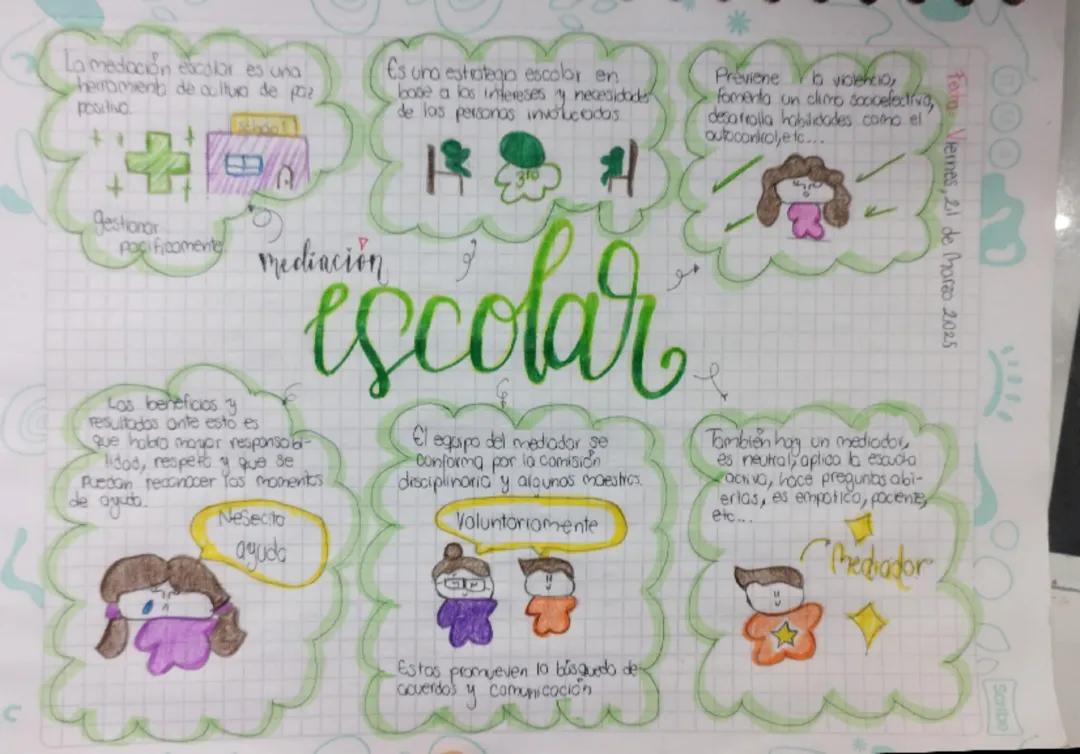 La mediación escolar es una
herramienta de cultura de paz
positiva.
school
gestionar
pacíficamente
Es una estrategia escolar en
base a los intereses y necesidades
de las personas involucradas
3ro
Previene la violencia,
fomenta un clima socioafectivo,
desarrolla habilidades como el
autocontrol, etc....
Fecha: Viernes, 21 de Marzo 2025
mediación
escolar
Los beneficios y
resultados ante esto es
que habra mayor responsabi-
lidad, respeto y que se
puedan reconocer los momentos
de ayuda.
Nesecito
ayuda
El equipo del mediador se
conforma por la comisión
disciplinaria y algunos maestros.
Voluntariamente
Estos promueven la búsqueda de
acuerdos y comunicación
También hay un mediador,
es neutral, aplica la escucha
activa, hace preguntas abi-
ertas, es empático, paciente,
etc...
Mediador
Scribe